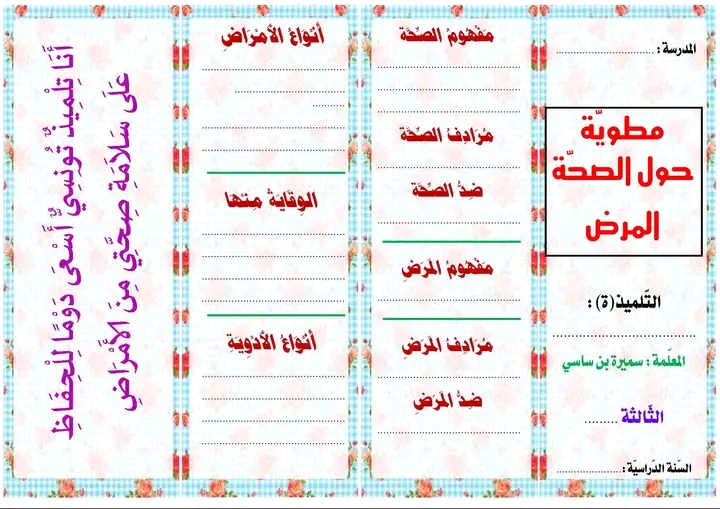 المدرسة : ..............................
مطويّة
حول الصحّة
المرض
التّلميذ(ة) :
..............................
المعلّمة : سميرة بن ساسي
الثّالثة .........
السّنة الدّراسيّة : ....................
مَفْهُومُ الصِّحَّة
مُرَادِفُ الصِّحَّة
ضِدُّ الصِّحَّة
مَفْهُومُ المَرَضِ
مُرَادِفُ المَرَضِ
ضِدُّ المَرَضِ
أَنْوَاعُ الأَمْرَاضِ
الوِقَايَةُ مِنها
أَنْوَاعُ الأَدْوِيَةِ
أَنَا تِلْمِيذٌ تُونِسِيٌّ أَسْعَى دَوْمًا لِلْحِفَاظِ
عَلَى سَلَامَةِ صِحَّتِي مِنَ الأَمْرَاضِ